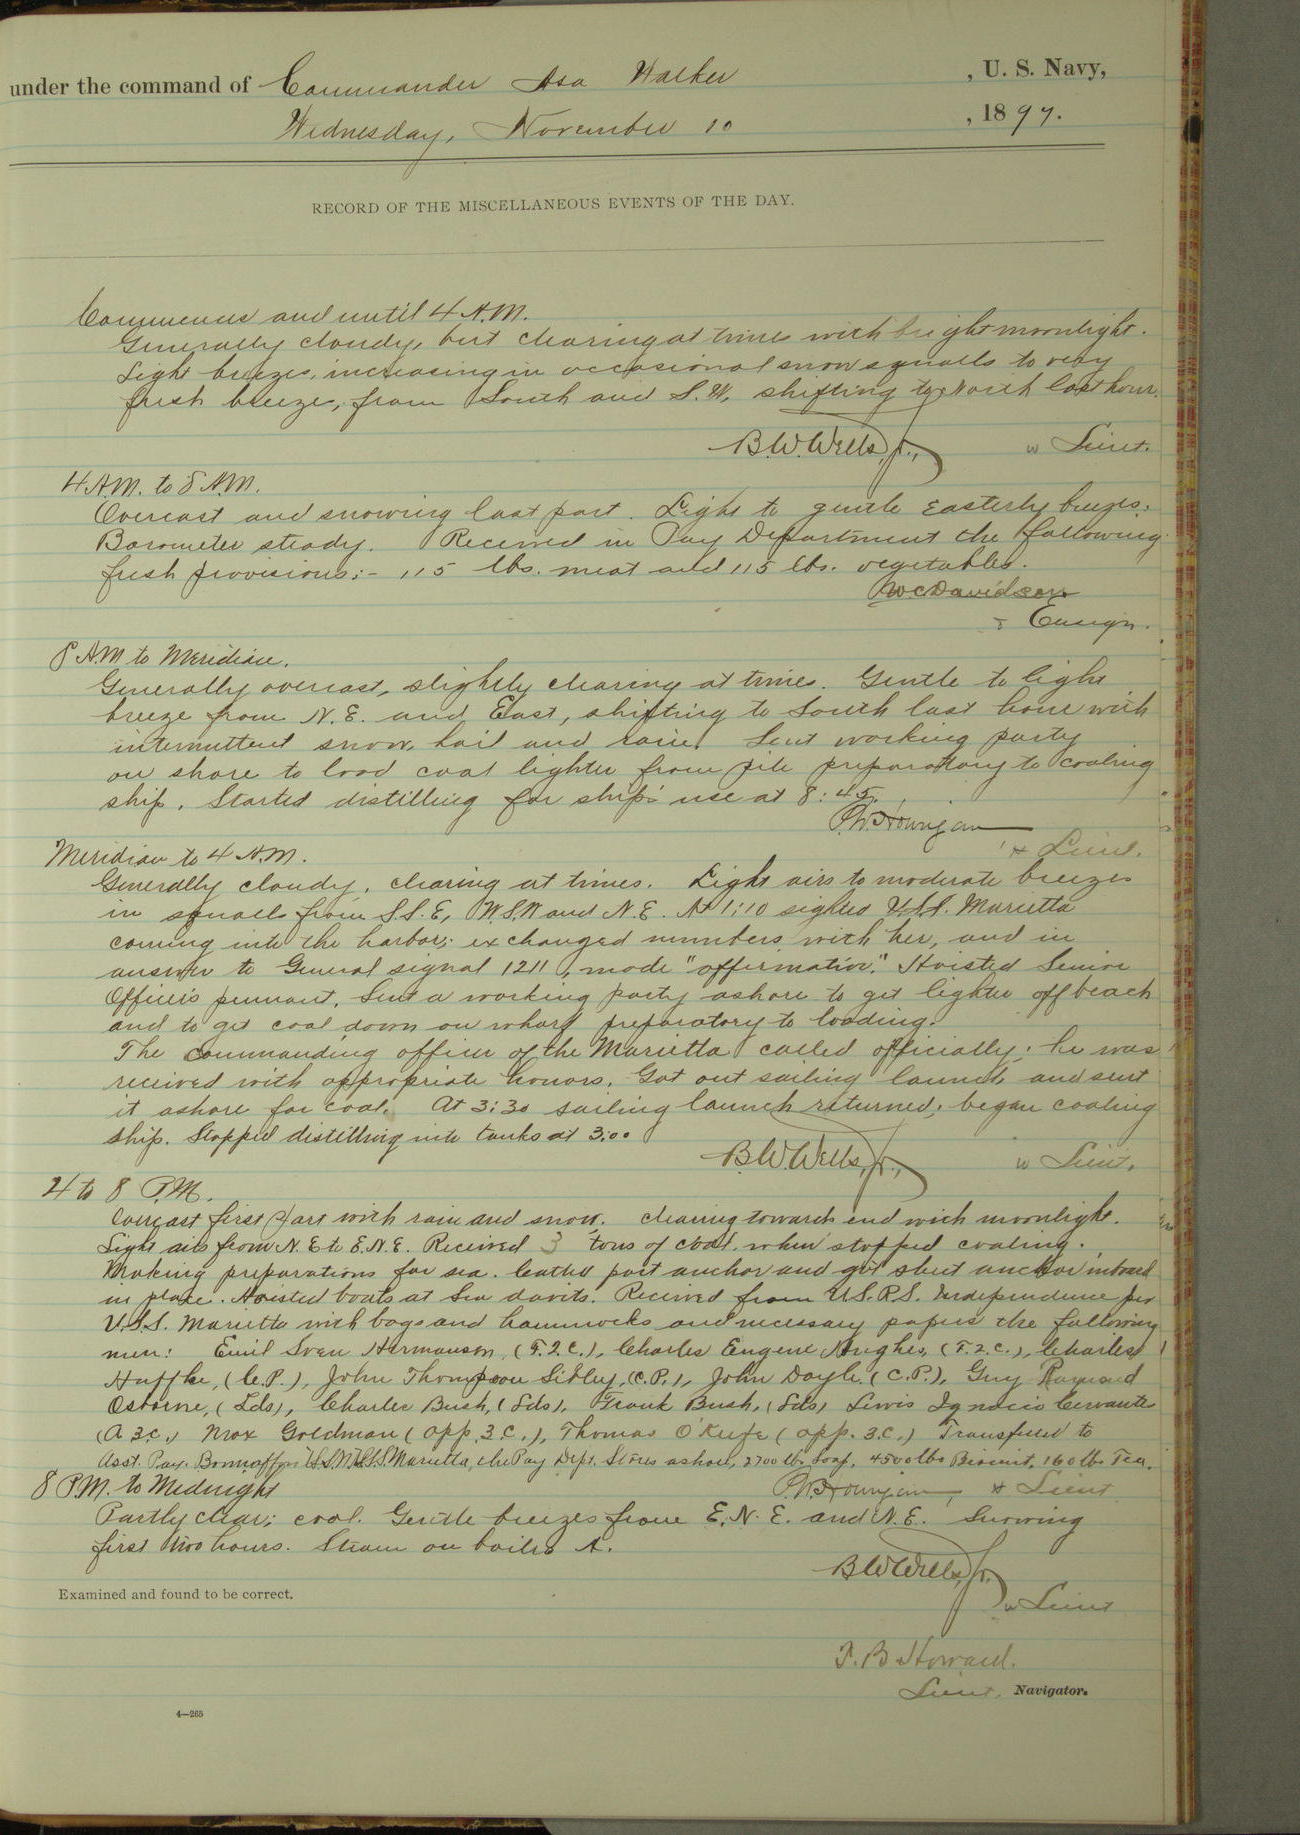 under the command of Commander Asa Walker , U. S. Navy,
Wednesday, November 10 , 1897.
RECORD OF THE MISCELLANEOUS EVENTS OF THE DAY.
Commences and until 4 A.M.
Generally cloudy, but clearing at times with bright moonlight.
Light breezes, increasing in occasional snow squalls to very
fresh breeze, from South and S.W. shifting to North last hour.
B.W. Wells, Jr., Lieut.
4 A.M. to 8 A.M.
Overcast and snowing last part. Light to gentle Easterly breezes.
Barometer steady. Received in Pay Department the following
fresh provisions:- 115 lbs. meat and 115 lbs. vegetables.
W C Davidson
Ensign.
8 A.M to Meridian.
Generally overcast, slightly clearing at times. Gentle to light
breeze from N.E. and East, shifting to South last hour with
intermittent snow, hail and rain. Sent working party
on shore to load coal lighter from pile preparatory to coaling
ship. Started distilling for ship's use at 8:45.
P.W. Hourigan
Lieut.
Meridian to 4 A.M.
Generally cloudy, clearing at times. Light airs to moderate breezes
in squalls from S.S.E, W.S.W and N.E. At 1:10 sighted U.S.S. Marietta
coming into the harbor; exchanged numbers with her, and in
answer to General signal 1211, made "affirmative." Hoisted Senior
Officer's pennant. Sent a working party ashore to get lighter off beach
and to get coal down on wharf preparatory to loading.
The commanding officer of the Marietta called officially; he was
received with appropriate honors. Got out sailing launch and sent
it ashore for coal. At 3:30 sailing launch returned; began coaling
ship. Stopped distilling into tanks at 3:00
B.W. Wells, Jr., Lieut.
4 to 8 P.M.
Overcast first part with rain and snow. clearing towards end with moonlight.
Light airs from N.E to E.N.E. Received 3 tons of coal, when stopped coaling.
Making preparations for sea. Catted port anchor and got sheet anchor inboard
in place. Hoisted boats at Sea davits. Received from U.S.R.S. Independence per
U.S.S. Marietta with bags and hammocks and necessary papers the following
men: Emil Sven Hermanson, (F.2.C.), Charles Eugene Hughes, (F.2.C.), Charles
Huffke, (C.P.), John Thompson Sibley, (C.P.), John Doyle (C.P.), Guy Raymond
Osborne, (Lds), Charles Bush, (Lds), Frank Bush, (Lds) Lewis Ignacio Cervantes
(A 3.C.) Max Goldman (App. 3.C.), Thomas O'Keefe (App. 3.C.) Transferred to
Asst. Pay. Bonnaffon U.S.N. U.S.S. Marietta, the Pay Dept. Stores ashore, 2700 lbs Soap, 4500 lbs Biscuit, 160 lbs Tea.
P.W. Hourigan, Lieut
8 P.M. to Midnight
Partly clear; cool. Gentle breezes from E.N.E. and N.E. Snowing
first two hours. Steam on boiler A.
B W Wells, Jr.
Lieut
Examined and found to be correct.
T. B. Howard.
Lieut, Navigator.
4—265